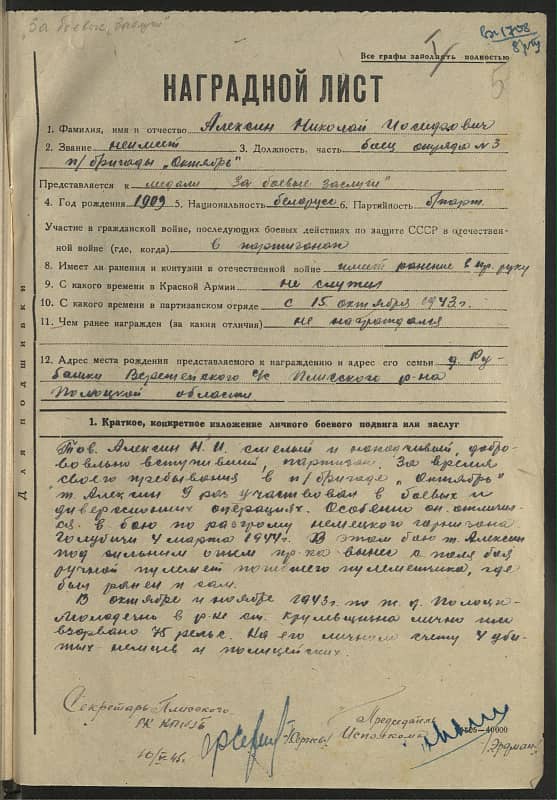 "За боевые заслуги"
вх 1708
8/VIII
5
Все графы заполнять полностью
НАГРАДНОЙ ЛИСТ
1. Фамилия, имя и отчество Алексин Николай Иосифович
2. Звание неимеет 3. Должность, часть боец отряда №3
п/бригады „Октябрь"
Представляется к медали „За боевые заслуги"
4. Год рождения 1909 5. Национальность беларусс 6. Партийность б/парт.
Участие в гражданской войне, последующих боевых действиях по защите СССР в отечествен-
ной войне (где, когда) в партизанах
8. Имеет ли ранения и контузии в отечественной войне имеет ранение в пр. руку
9. С какого времени в Красной Армии не служил
10. С какого времени в партизанском отряде с 15 октября 1943 г.
11. Чем ранее награжден (за какии отличия) не награждался
12. Адрес места рождения представляемого к награждению и адрес его семьи д. Ру-
башки Верстейского с/с Плисского р-на
Полоцкой области
Для подшивки
1. Краткое, конкретное изложение личного боевого подвига или заслуг
Тов. Алексин Н. И. смелый и находчивый, добро-
вольно вступивший, партизан. За время
своего пребывания в п/бригаде „Октябрь"
т. Алексин 9 раз участвовал в боевых и
диверсионных операциях. Особенно он отличил-
ся в бою по разгрому немецкого гарнизона
Голубичи 4 марта 1944 г. В этом бою т. Алексин
под сильным огнем пр-ка вынес с поля боя
ручной пулемет погибшего пулеметчика, где
был ранен и сам.
В октябре и ноябре 1943 г. по ж.д. Полоцк-
Молодечно в р-не ст. Крулевщизна лично им
взорвано 75 рельс. На его личном счету 4 уби-
тых немцев и полицейских.
Секретарь Плисского
РК КП(б)Б
Председатель
Исполкома
/Эрдман/
505—40000